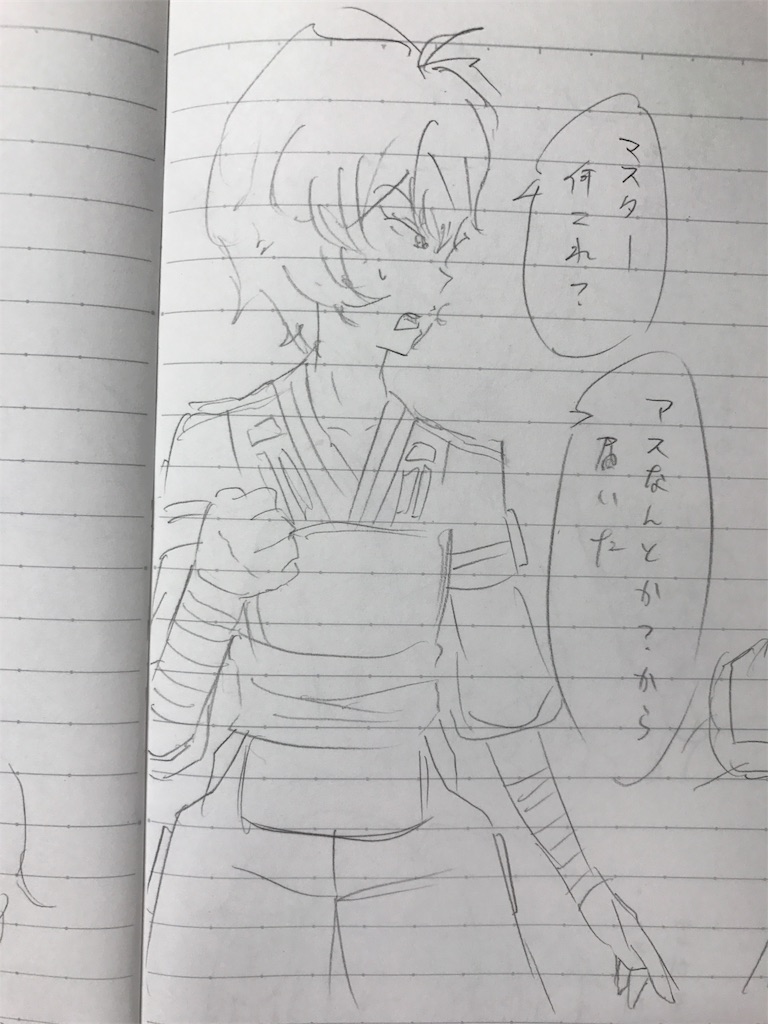 マスター
何これ?
アスなんとか?から
届いた